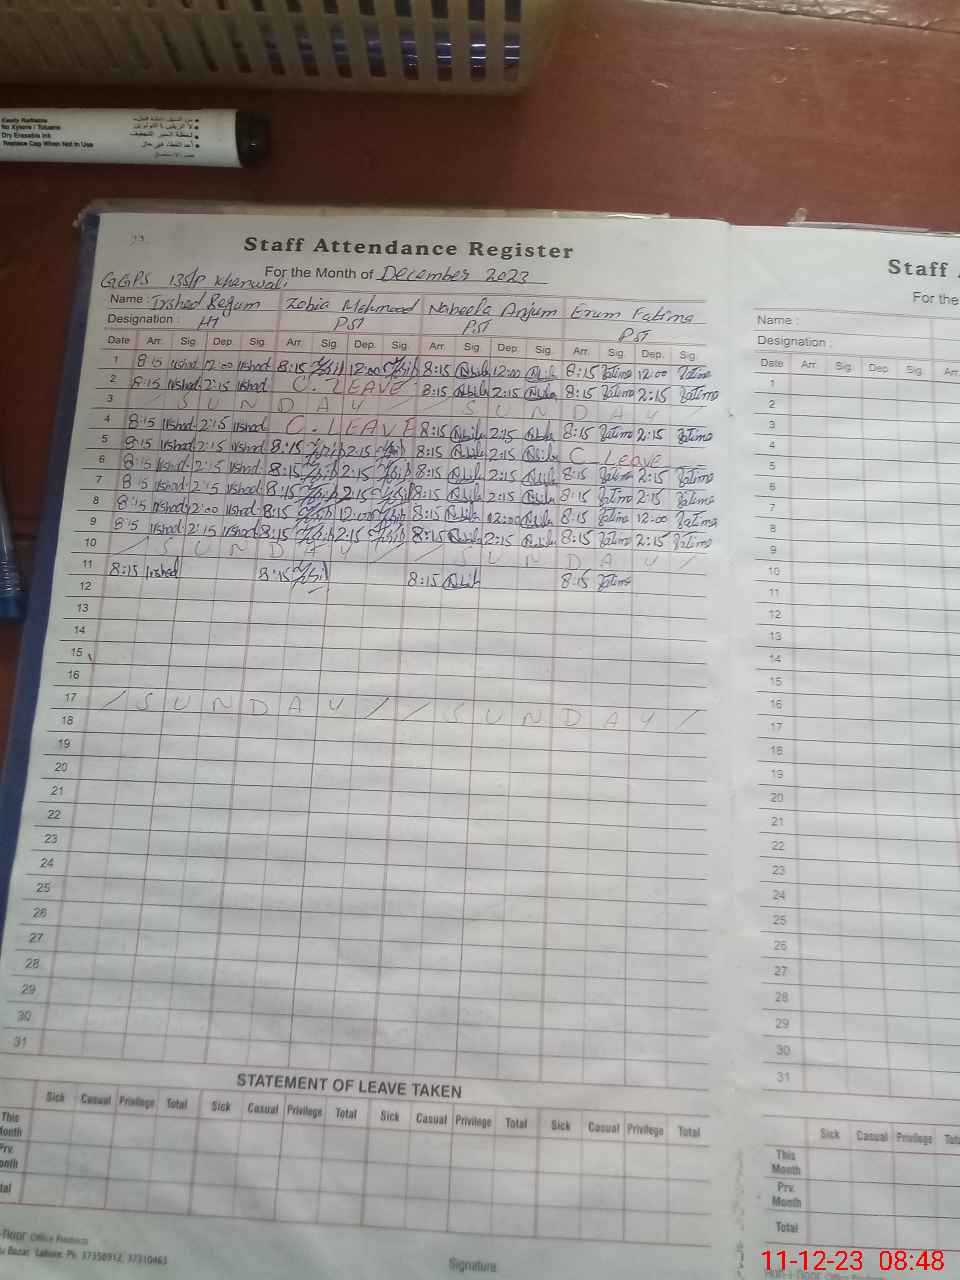 Easily Erasable
No Xylene / Toluene
Dry Erasable Ink
Replace Cap When Not In Use
Staff Attendance Register
For the Month of December 2023
GGPS 135/P Khanwali
Name : Irshad Begum Zobia Mehmood Nabeela Anjum Erum Fatima
Designation : HT PST PST PST
Date Arr. Sig. Dep. Sig. Arr. Sig. Dep. Sig. Arr. Sig. Dep. Sig. Arr. Sig. Dep. Sig.
1 8:15 Irshad 12:00 Irshad 8:15 12:00 8:15 Nabila 12:00 Nabila 8:15 Fatima 12:00 Fatima
2 8:15 Irshad 2:15 Irshad C. LEAVE 8:15 Nabila 2:15 Nabila 8:15 Fatima 2:15 Fatima
3 / S U N D A Y / S U N D A Y /
4 8:15 Irshad 2:15 Irshad C. LEAVE 8:15 Nabila 2:15 Nabila 8:15 Fatima 2:15 Fatima
5 8:15 Irshad 2:15 Irshad 8:15 2:15 8:15 Nabila 2:15 Nabila C. Leave
6 8:15 Irshad 2:15 Irshad 8:15 2:15 8:15 Nabila 2:15 Nabila 8:15 Fatima 2:15 Fatima
7 8:15 Irshad 2:15 Irshad 8:15 2:15 8:15 Nabila 2:15 Nabila 8:15 Fatima 2:15 Fatima
8 8:15 Irshad 2:00 Irshad 8:15 12:00 8:15 Nabila 12:00 Nabila 8:15 Fatima 12:00 Fatima
9 8:15 Irshad 2:15 Irshad 8:15 2:15 8:15 Nabila 2:15 Nabila 8:15 Fatima 2:15 Fatima
10 / S U N D A Y / / S U N D A Y /
11 8:15 Irshad 8:15 8:15 Nabila 8:15 Fatima
12
13
14
15
16
17 / S U N D A Y / / S U N D A Y /
18
19
20
21
22
23
24
25
26
27
28
29
30
31
STATEMENT OF LEAVE TAKEN
Sick Casual Privilege Total Sick Casual Privilege Total Sick Casual Privilege Total Sick Casual Privilege Total
This
Month
Prv.
Month
Total
Office Products
Bazar, Lahore. Ph: 37350912, 37310465
Signature
Staff
For the
Name :
Designation :
Date Arr. Sig. Dep. Sig. Arr.
1
2
3
4
5
6
7
8
9
10
11
12
13
14
15
16
17
18
19
20
21
22
23
24
25
26
27
28
29
30
31
Sick Casual Privilege
This
Month
Prv.
Month
Total
11-12-23 08:48